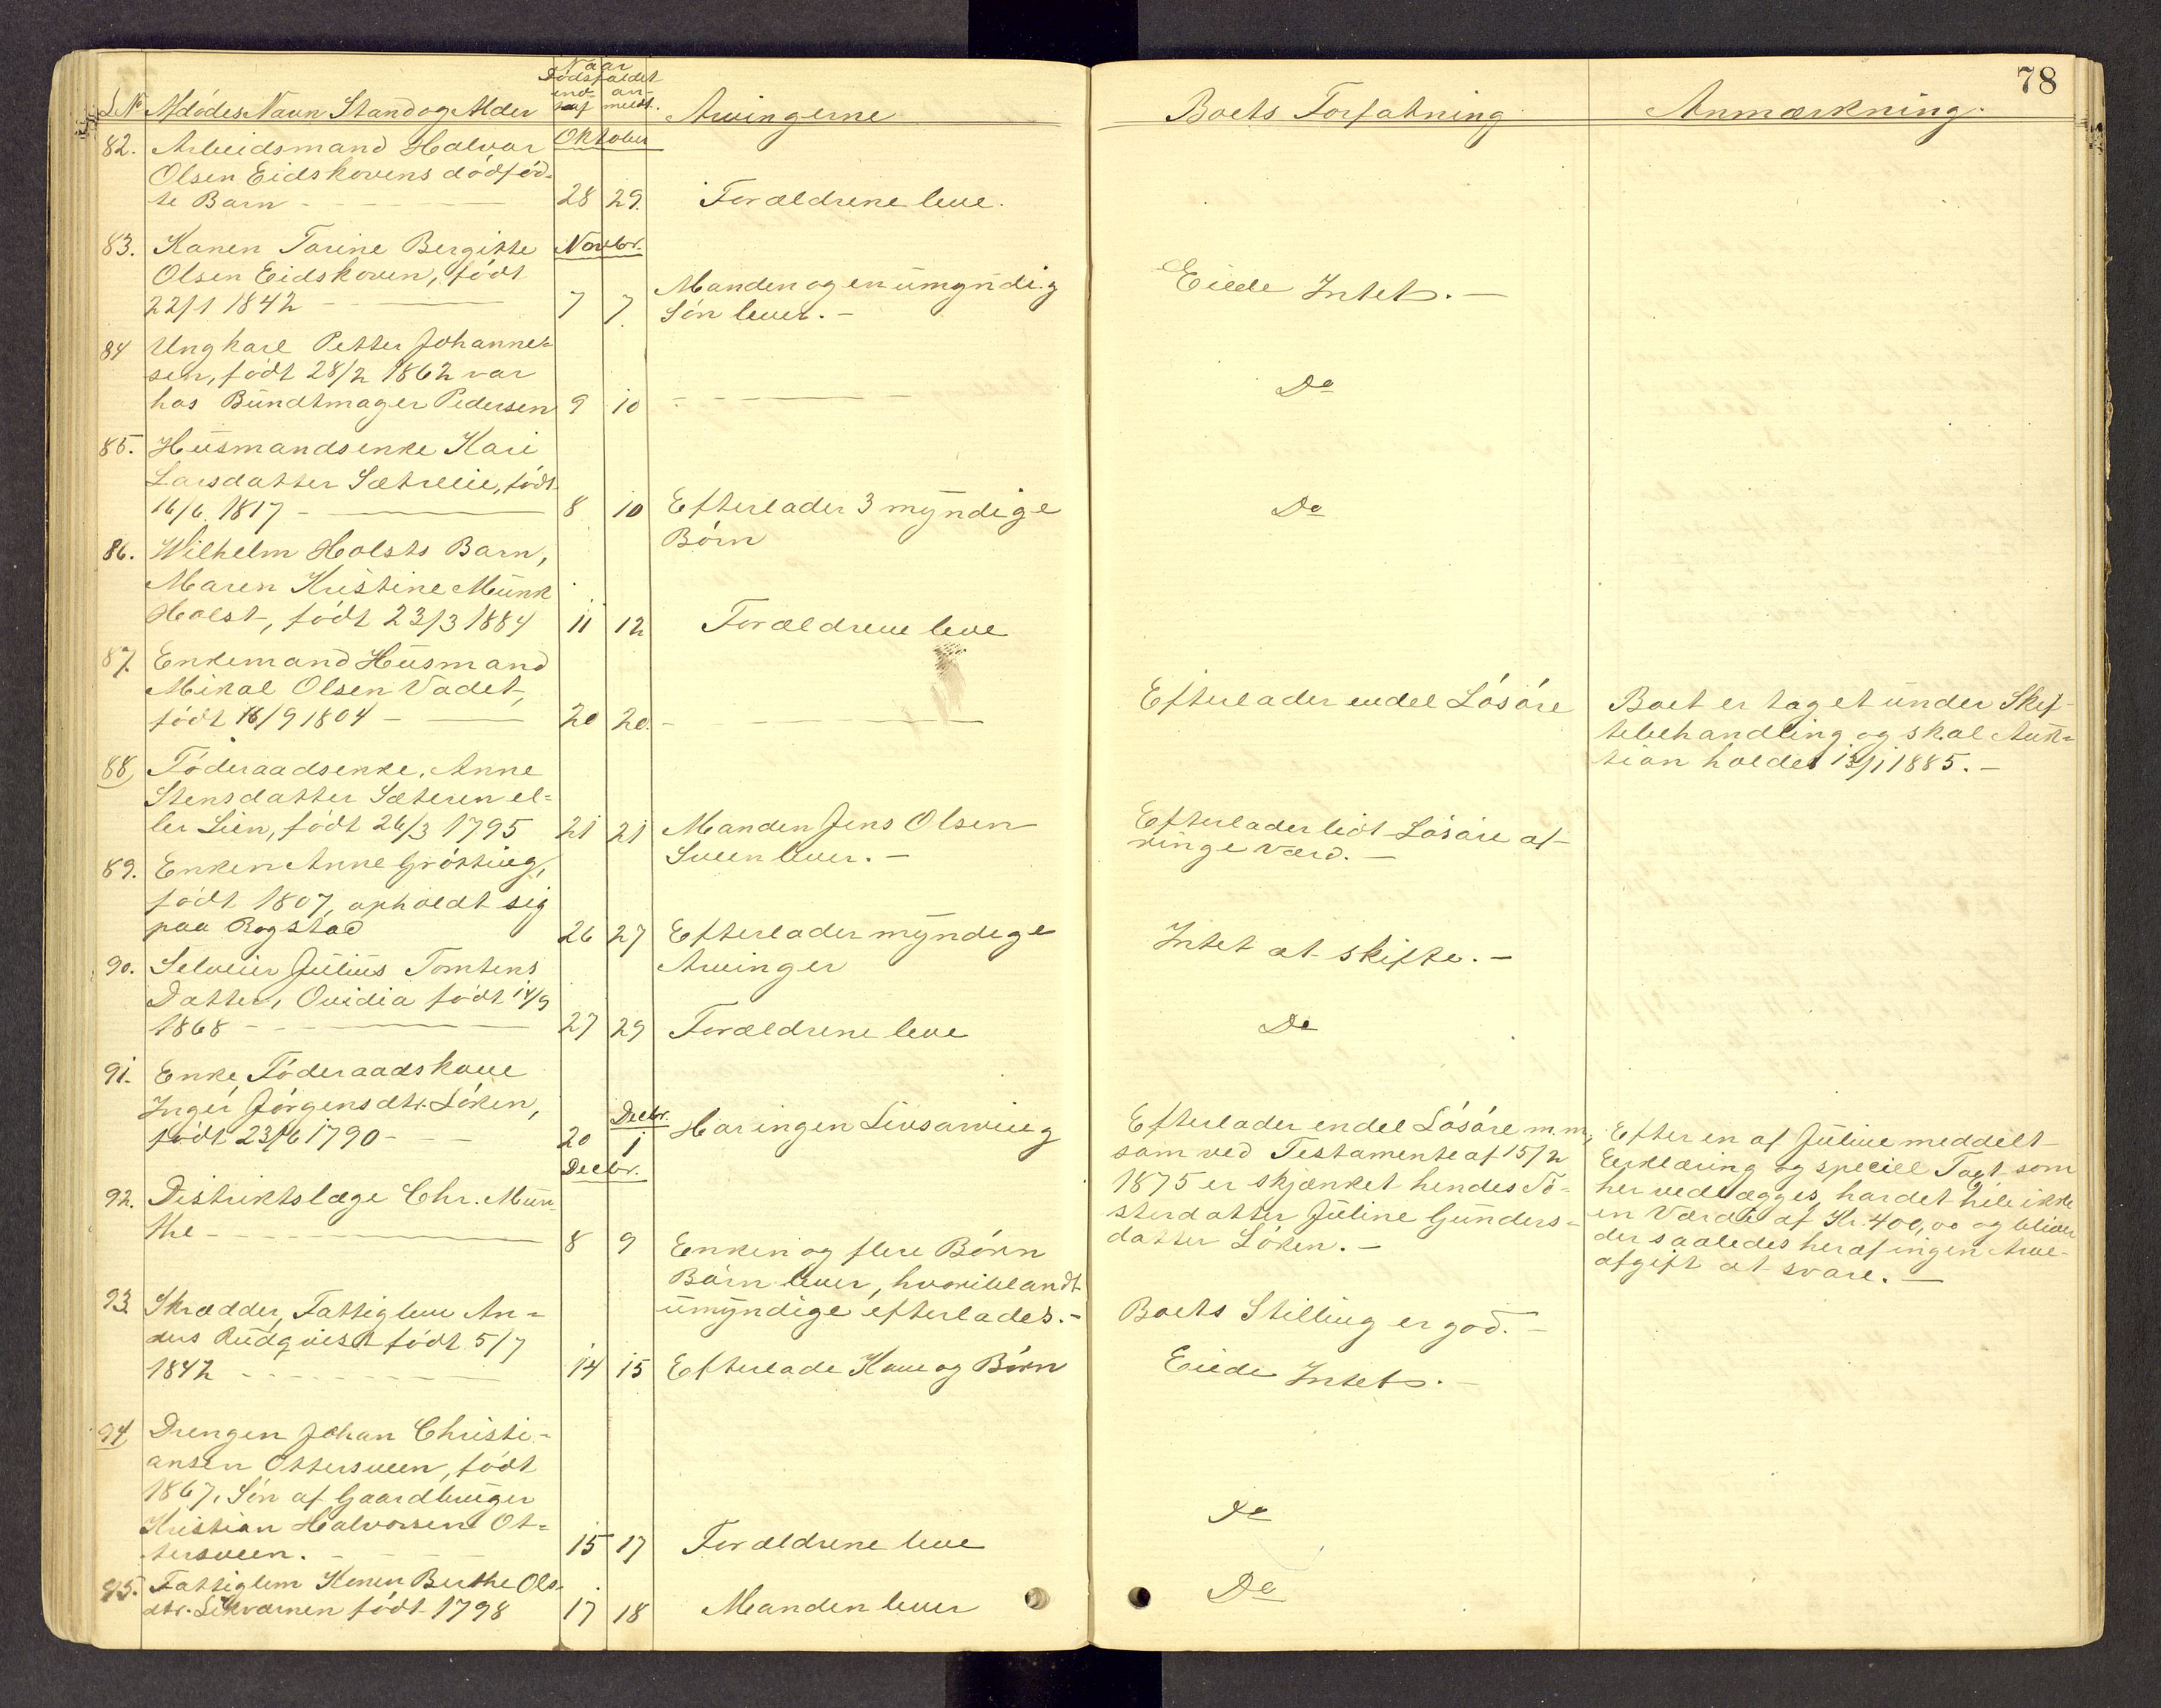 78
Naar
Dødsfaldet
ind- an-
traf meldt.
L№ Afdødes Navn Stand og Alder
Arvingerne
Boets Forfatning
Anmærkning.
82. Arbeidsmand Halvor
Oktober
Olsen Eidskovens dødfød-
te Barn 28 29. Forældrene leve.
83. Konen Tarine Bergitte
Novbr.
Olsen Eidskoven, født
22/1 1842 7 7. Manden og en umyndig
Søn lever.-
Eiede Intet.-
84 Ungkarl Petter Johannes-
sen, født 28/2 1862 var
hos Bundtmager Pedersen 9 10
Do
85. Husmandsenke Kari
Larsdatter Sætreeie, født
16/6 1817 8 10 Efterlader 3 myndige
Børn
Do
86. Wilhelm Holsts Barn,
Maren Kristine Munk
Holst, født 23/3 1884 11 12 Forældrene leve
87. Enkemand Husmand
Mikal Olsen Vadet,
født 16/9 1804 20 20.
Efterlader endel Løsøre
Boet er taget under Skif-
tebehandling og skal Auk-
tion holdes 13/1 1885.-
88, Føderaadsenke, Anne
Stensdatter Sæteren el-
ler Lien, født 26/3 1795 21 21 Manden Jens Olsen
Sveen lever.-
Efterlader lidt Løsøre af
ringe Værd.-
89. Enken Anne Grøtting,
født 1807, opholdt sig
paa Rogstad 26 27 Efterlader myndige
Arvinger
Intet at skifte.-
90. Selveier Julius Tomtens
Datter, Ovidia født 14/9
1868 27 29 Forældrene leve
Do
91. Enke, Føderaadskone
Inger Jørgensdtr. Løken,
født 23/6 1790 20
Decbr.
1 Har ingen Livsarving
Efterlader endel Løsøre m.m.
som ved Testamente af 15/2
1875 er skjænket hendes Sø-
sterdatter Juline Gunders-
datter Løken.-
Efter en af Juline meddelt
Erklæring og speciel Taxt som
her vedlægges, har det hele ikke
en Værdi af Kr. 400,00 og bliver
der saaledes heraf ingen Arve-
afgift at svare.-
Decbr.
92. Distriktslæge Chr. Mun-
the 8 9 Enken og flere Børn
Børn lever, hvoriblandt
umyndige efterlades.-
Boets Stilling er god.-
93. Skrædder, Fattiglem An-
ders Rudqvist født 5/7
1842 14 15 Efterlade Kone og Børn
Eiede Intet.-
94, Drengen Johan Christi-
ansen Ottersveen, født
1867, Søn af Gaardbruger
Kristian Halvorsen Ot-
tersveen. 15 17 Forældrene leve
Do
95. Fattiglem Konen Berthe Ols-
dtr. født 1798 17 18 Manden lever
Do